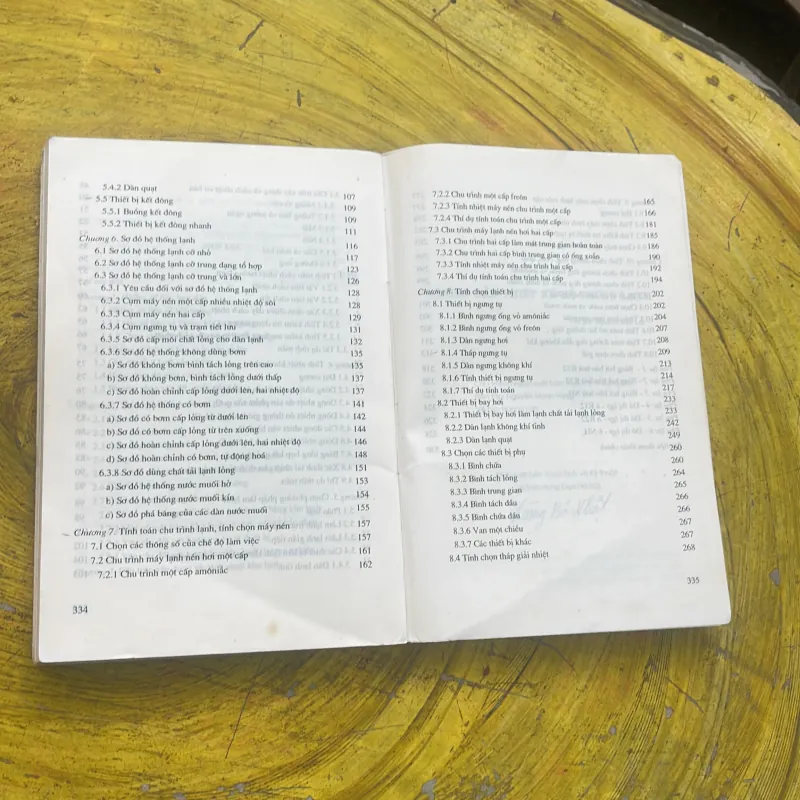 5.4.2 Dàn quạt 107
5.5 Thiết bị kết đông 109
5.5.1 Buồng kết đông 109
5.5.2 Thiết bị kết đông nhanh 111
Chương 6. Sơ đồ hệ thống lạnh 116
6.1 Sơ đồ hệ thống lạnh cỡ nhỏ 117
6.2 Sơ đồ hệ thống lạnh cỡ trung dạng tổ hợp 123
6.3 Sơ đồ hệ thống lạnh cỡ trung và lớn 126
6.3.1 Yêu cầu đối với sơ đồ hệ thống lạnh 128
6.3.2 Cụm máy nén một cấp nhiều nhiệt độ sôi 128
6.3.3 Cụm máy nén hai cấp 129
6.3.4 Cụm ngưng tụ và trạm tiết lưu 131
6.3.5 Sơ đồ cấp môi chất lỏng cho dàn lạnh 132
6.3.6 Sơ đồ hệ thống không dùng bơm 135
a) Sơ đồ không bơm bình tách lỏng trên cao 135
b) Sơ đồ không bơm, bình tách lỏng dưới thấp 137
c) Sơ đồ hoàn chỉnh cấp lỏng dưới lên, hai nhiệt độ 137
6.3.7 Sơ đồ hệ thống có bơm 141
a) Sơ đồ có bơm cấp lỏng từ dưới lên 142
b) Sơ đồ có bơm cấp lỏng từ trên xuống 144
c) Sơ đồ hoàn chỉnh cấp lỏng dưới lên, hai nhiệt độ 146
d) Sơ đồ hoàn chỉnh có bơm, tự động hoá 148
6.3.8 Sơ đồ dùng chất tải lạnh lỏng 151
a) Sơ đồ hệ thống nước muối hở 153
b) Sơ đồ hệ thống nước muối kín 154
c) Sơ đồ phá băng của các dàn nước muối 155
Chương 7. Tính toán chu trình lạnh, tính chọn máy nén 157
7.1 Chọn các thông số của chế độ làm việc 157
7.2 Chu trình máy lạnh nén hơi một cấp 161
7.2.1 Chu trình một cấp amôniắc 162
334
7.2.2 Chu trình một cấp freôn 165
7.2.3 Tính nhiệt máy nén chu trình một cấp 166
7.2.4 Thí dụ tính toán chu trình một cấp 181
7.3 Chu trình máy lạnh nén hơi hai cấp 185
7.3.1 Chu trình hai cấp làm mát trung gian hoàn toàn 186
7.3.2 Chu trình hai cấp bình trung gian có ống xoắn 190
7.3.3 Tính nhiệt máy nén chu trình hai cấp 192
7.3.4 Thí dụ tính toán chu trình hai cấp 194
Chương 8. Tính chọn thiết bị 202
8.1 Thiết bị ngưng tụ 202
8.1.1 Bình ngưng ống vỏ amôniắc 204
8.1.2 Bình ngưng ống vỏ freôn 207
8.1.3 Dàn ngưng hơi 208
8.1.4 Tháp ngưng tụ 209
8.1.5 Dàn ngưng không khí 213
8.1.6 Tính thiết bị ngưng tụ 214
8.1.7 Thí dụ tính toán 217
8.2 Thiết bị bay hơi 233
8.2.1 Thiết bị bay hơi làm lạnh chất tải lạnh lỏng 233
8.2.2 Dàn lạnh không khí tĩnh 242
8.2.3 Dàn lạnh quạt 249
8.3 Chọn các thiết bị phụ 260
8.3.1 Bình chứa 260
8.3.2 Bình tách lỏng 264
8.3.3 Bình trung gian 265
8.3.4 Bình tách dầu 266
8.3.5 Bình chứa dầu 266
8.3.6 Van một chiều 267
8.3.7 Các thiết bị khác 267
8.4 Tính chọn tháp giải nhiệt 268
335